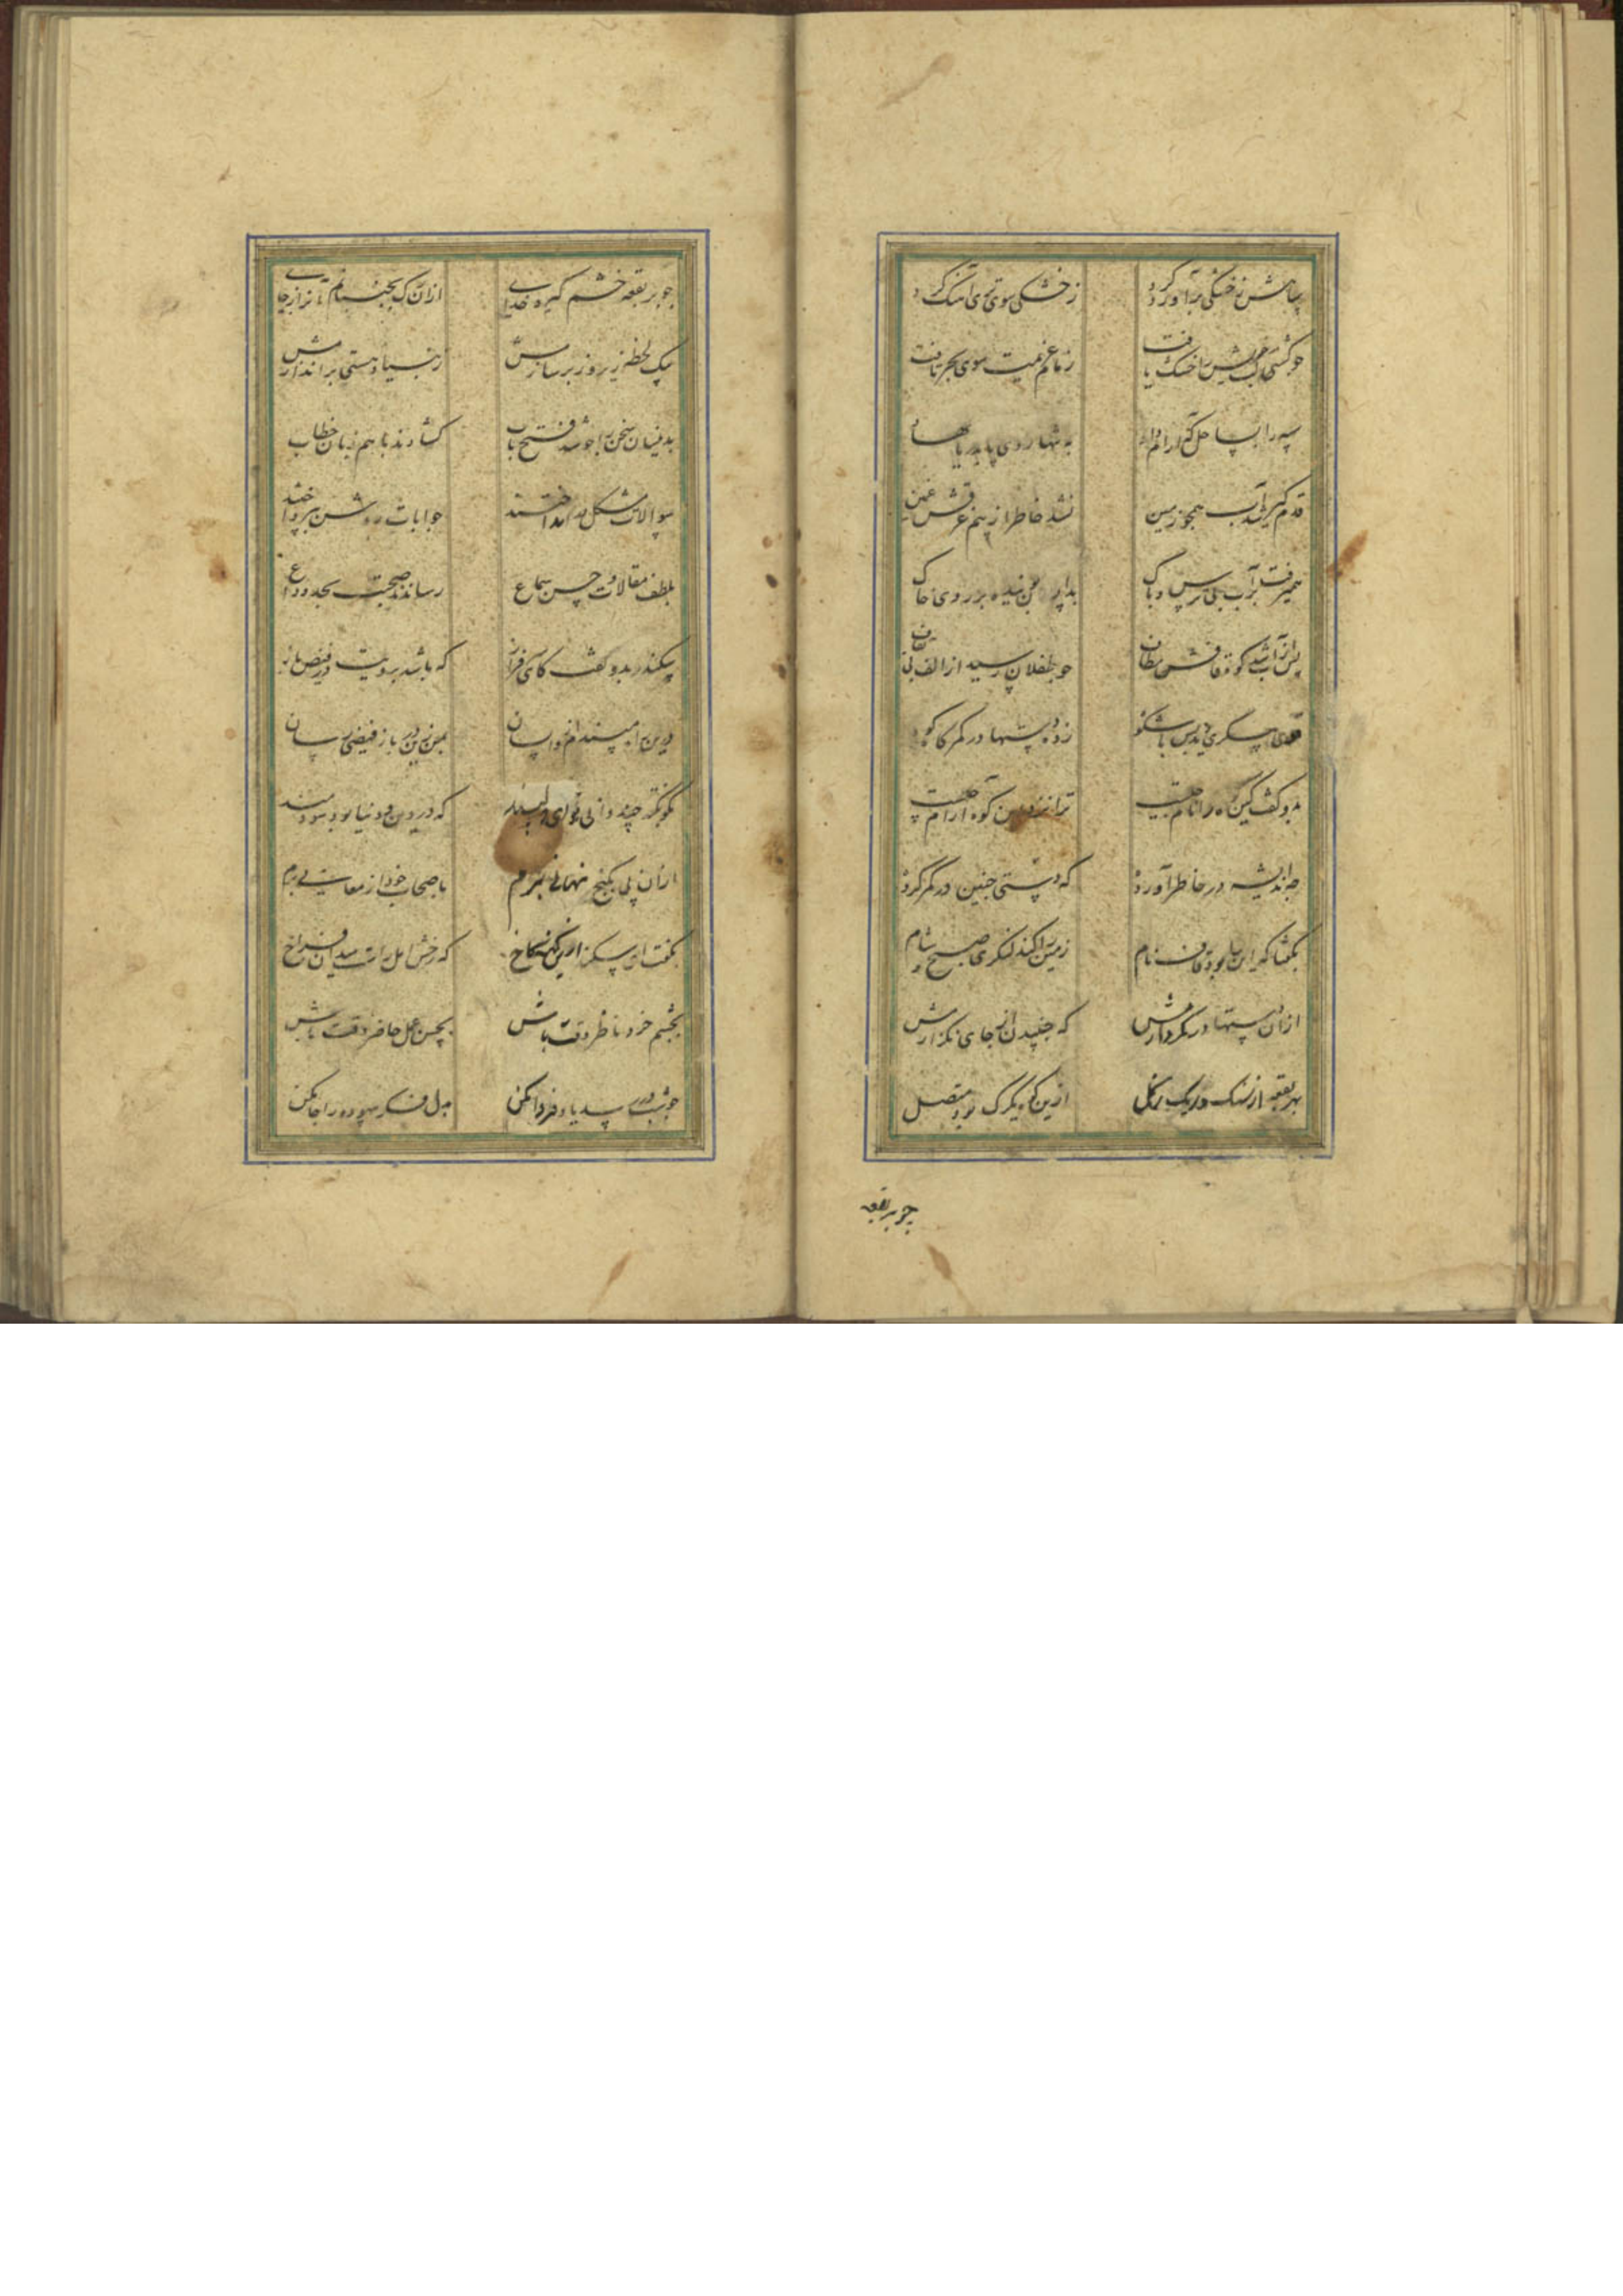 سپاهش ز خشکی برآورد گرد ز خشکی سوی تری آهنگ کرد
چو کشتی خویش را خشک یافت زمام عزیمت سوی بحر تافت
سپه را بساحل گه آرام داد به تنها روی پا بدریا نهاد
قدم گیر شد آب همچو زمین نشد خاطر از بیم غرقش غمین
همیرفت بر آب بی ترس و باک بروی خاک
پس از آب شد کوه قافش مطاف چو طفلان رسید از الف بی بقاف
قوی پیکری دید بس با شکوه زده دستها در کمرگاه کوه
بدو گفت کین کوه را نام چیست ترا نزد این کوه آرام چیست
چه اندیشه در خاطر آورده که دستی چنین در کمر کرده
بگفتا که این را بود قاف نام زمین را کند لنگری صبح و شام
ازان دستها در کمر دارمش که جنبیدن از جای نگذارمش
بهر بقعه از سنگ و ریگ و گل ازین که یکی رگ بود متصل
چو بر بقعه
چو بر بقعه خشم گیرد خدای ازان رگ بجنبانم آنرا ز جای
بیک لحظه زیر و زبر سازمش ز بنیاد هستی براندازمش
بدینسان سخن را چو شد فتح باب گشادند با هم زبان خطاب
سوالات مشکل در انداختند جوابات روشن بپرداختند
بلطف مقالات و حسن سماع رساندند صحبت بحد وداع
سکندر بدو گفت کای سرفراز که باشد برویت در فیض باز
درین ره مپسندم از واپسان بمن زین در باز فیضی رسان
بگو نکته چند دلپسند که در دین و دنیا بود سودمند
ازان پی بگنج نهانی برم باصحاب خود ارمغانی برم
بگفت ای سکندر ازین کهنه کاخ که رخش امل راست میدان فراخ
بچشم خرد ناظر وقت باش بحسن عمل حاضر وقت باش
چو شب در رسد یاد فردا مکن بدل فکر بیهوده را جا مکن